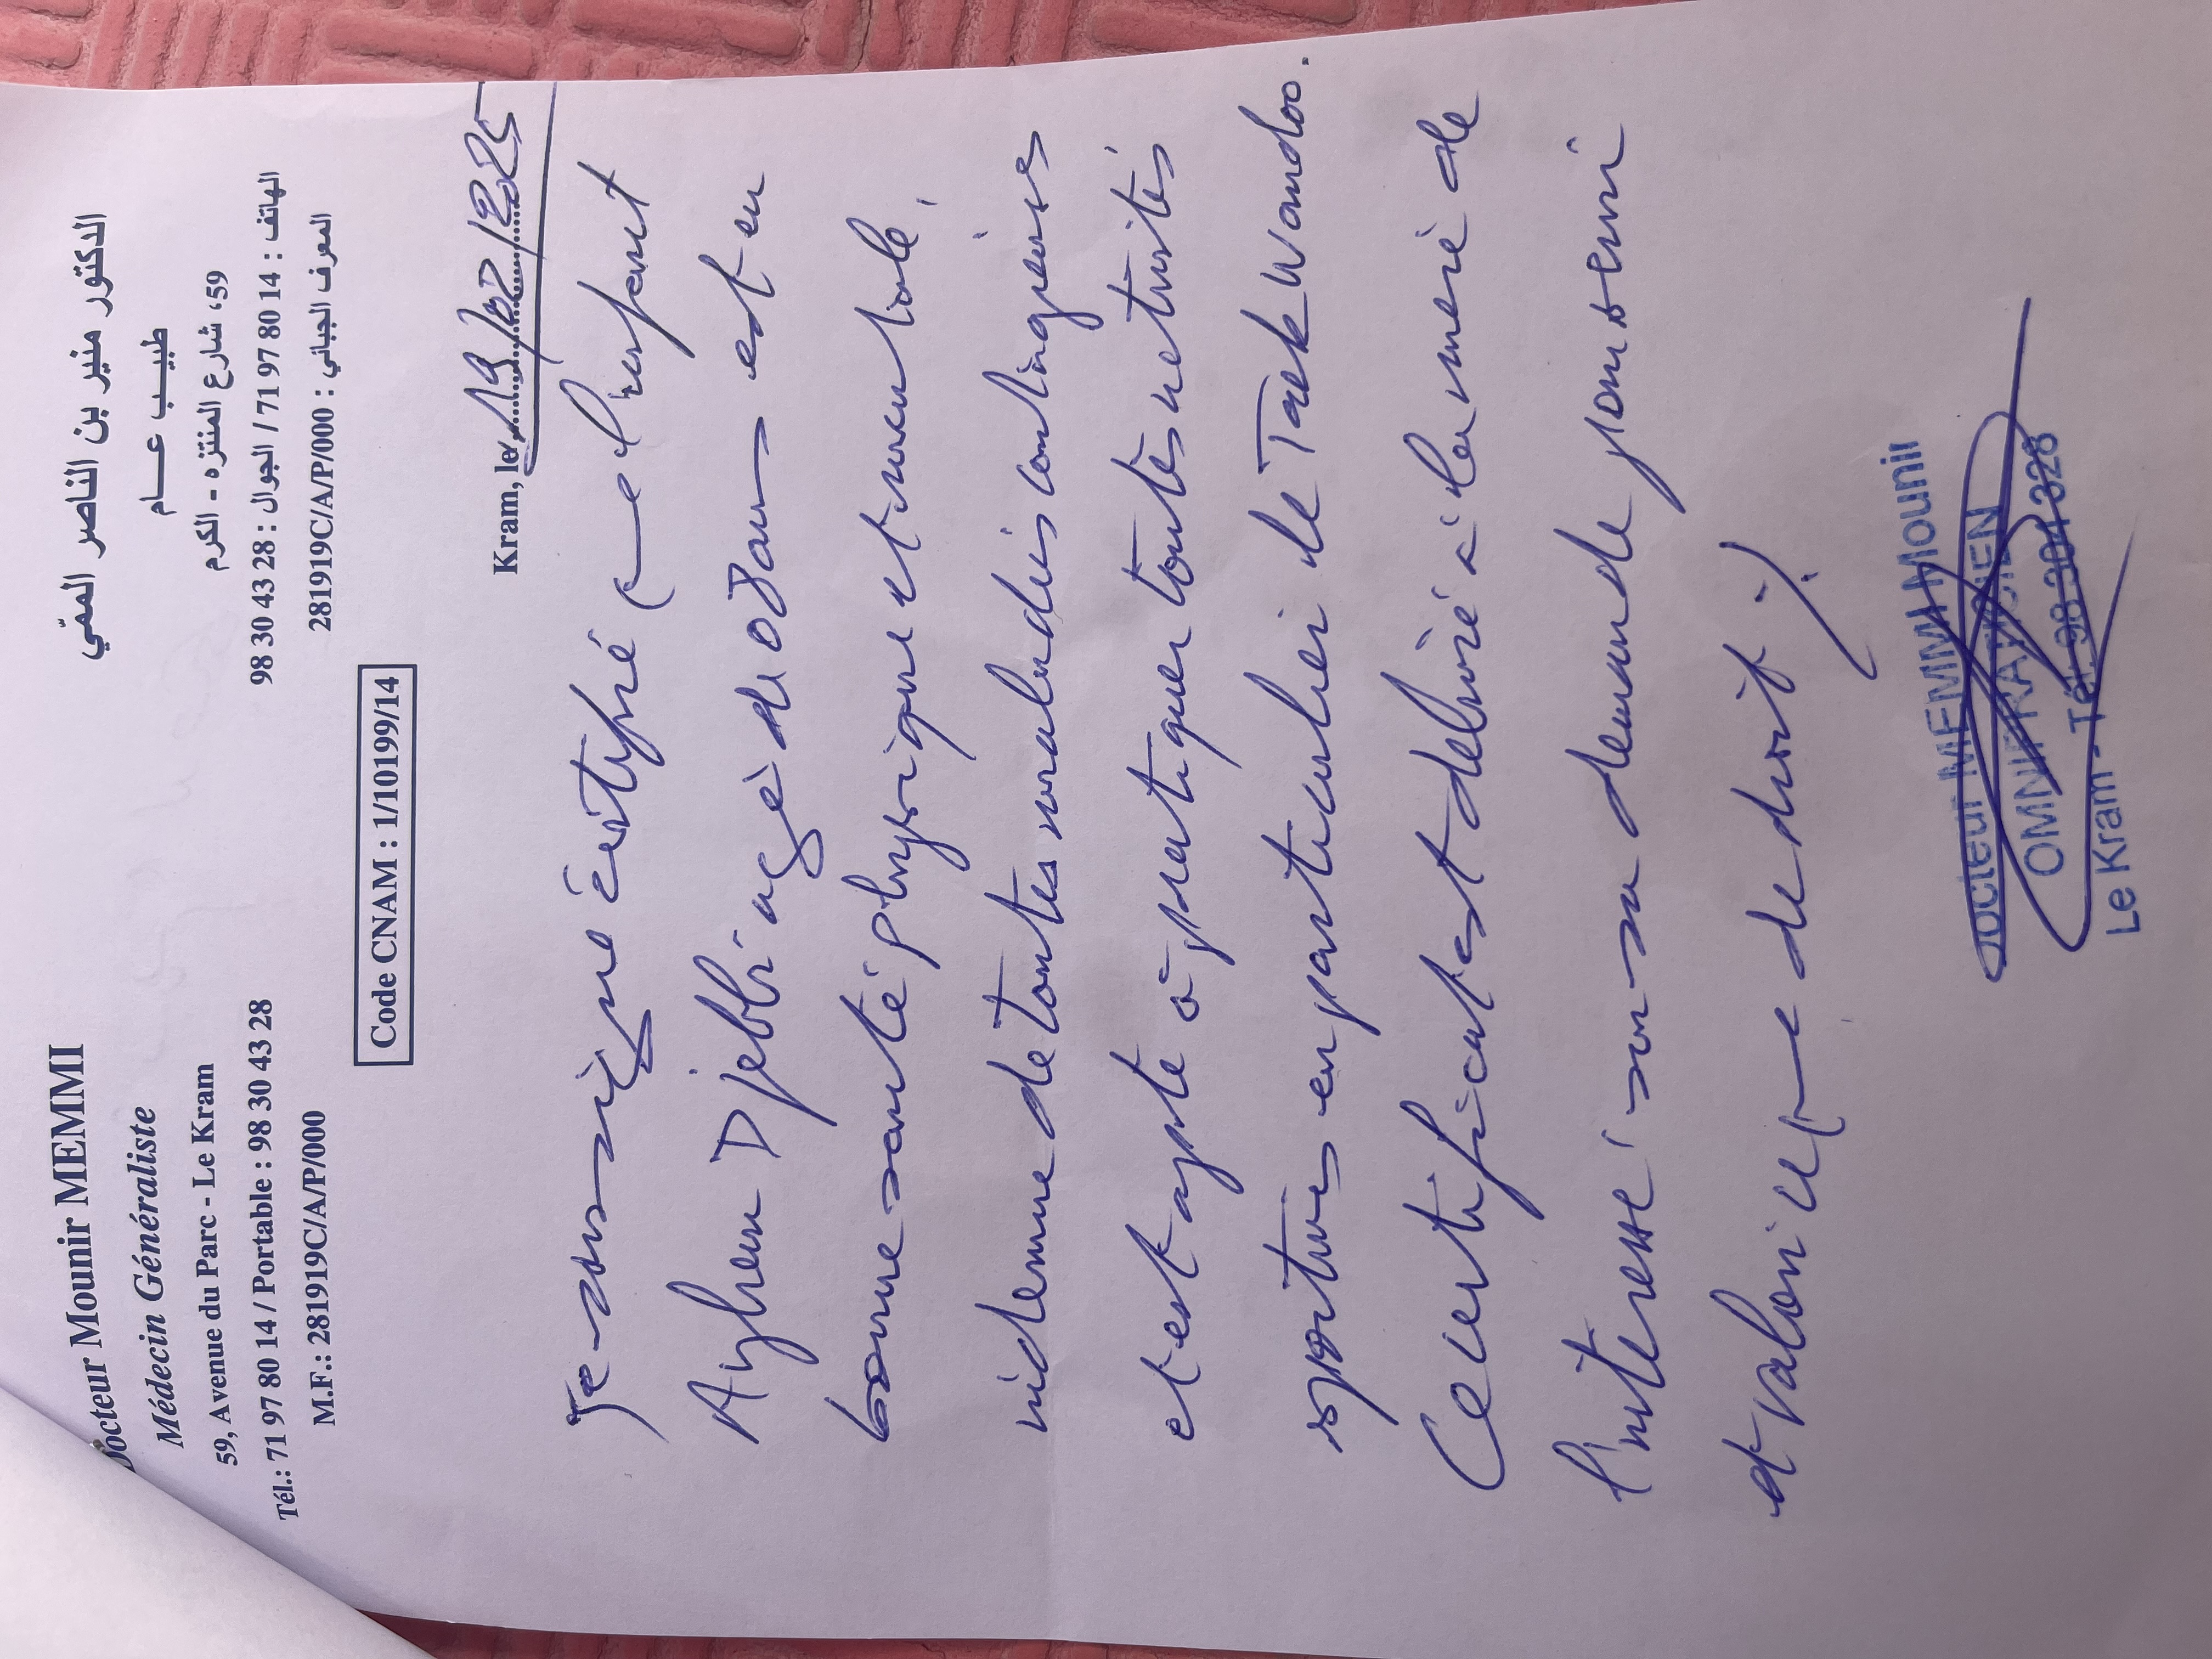 Docteur Mounir MEMMI
Médecin Généraliste
59, Avenue du Parc - Le Kram
Tél.: 71 97 80 14 / Portable : 98 30 43 28
M.F.: 281919C/A/P/000
الدكتور منير بن الناصر الممّي
طبيب عــام
59، شارع المنتزه - الكرم
الهاتف : 14 80 97 71 / الجوال : 28 43 30 98
المعرف الجبائي : 281919C/A/P/000
Code CNAM : 1/10199/14
Kram, le
Je soussigné certifié que l'enfant
Djebbi agé de 08 ans est en
bonne santé physique et mentale,
indemne de toutes maladies contagieuses
et est apte à pratiquer toutes activités
sportives en particulier le Taekwondo.
Ce certificat est delivré à la mère de
l'interessé sur sa demande pour servir
et valoir ce que de droit ./.
Docteur MEMMI Mounir
OMNIPRATICIEN
Le Kram - Tél: 98 304 328